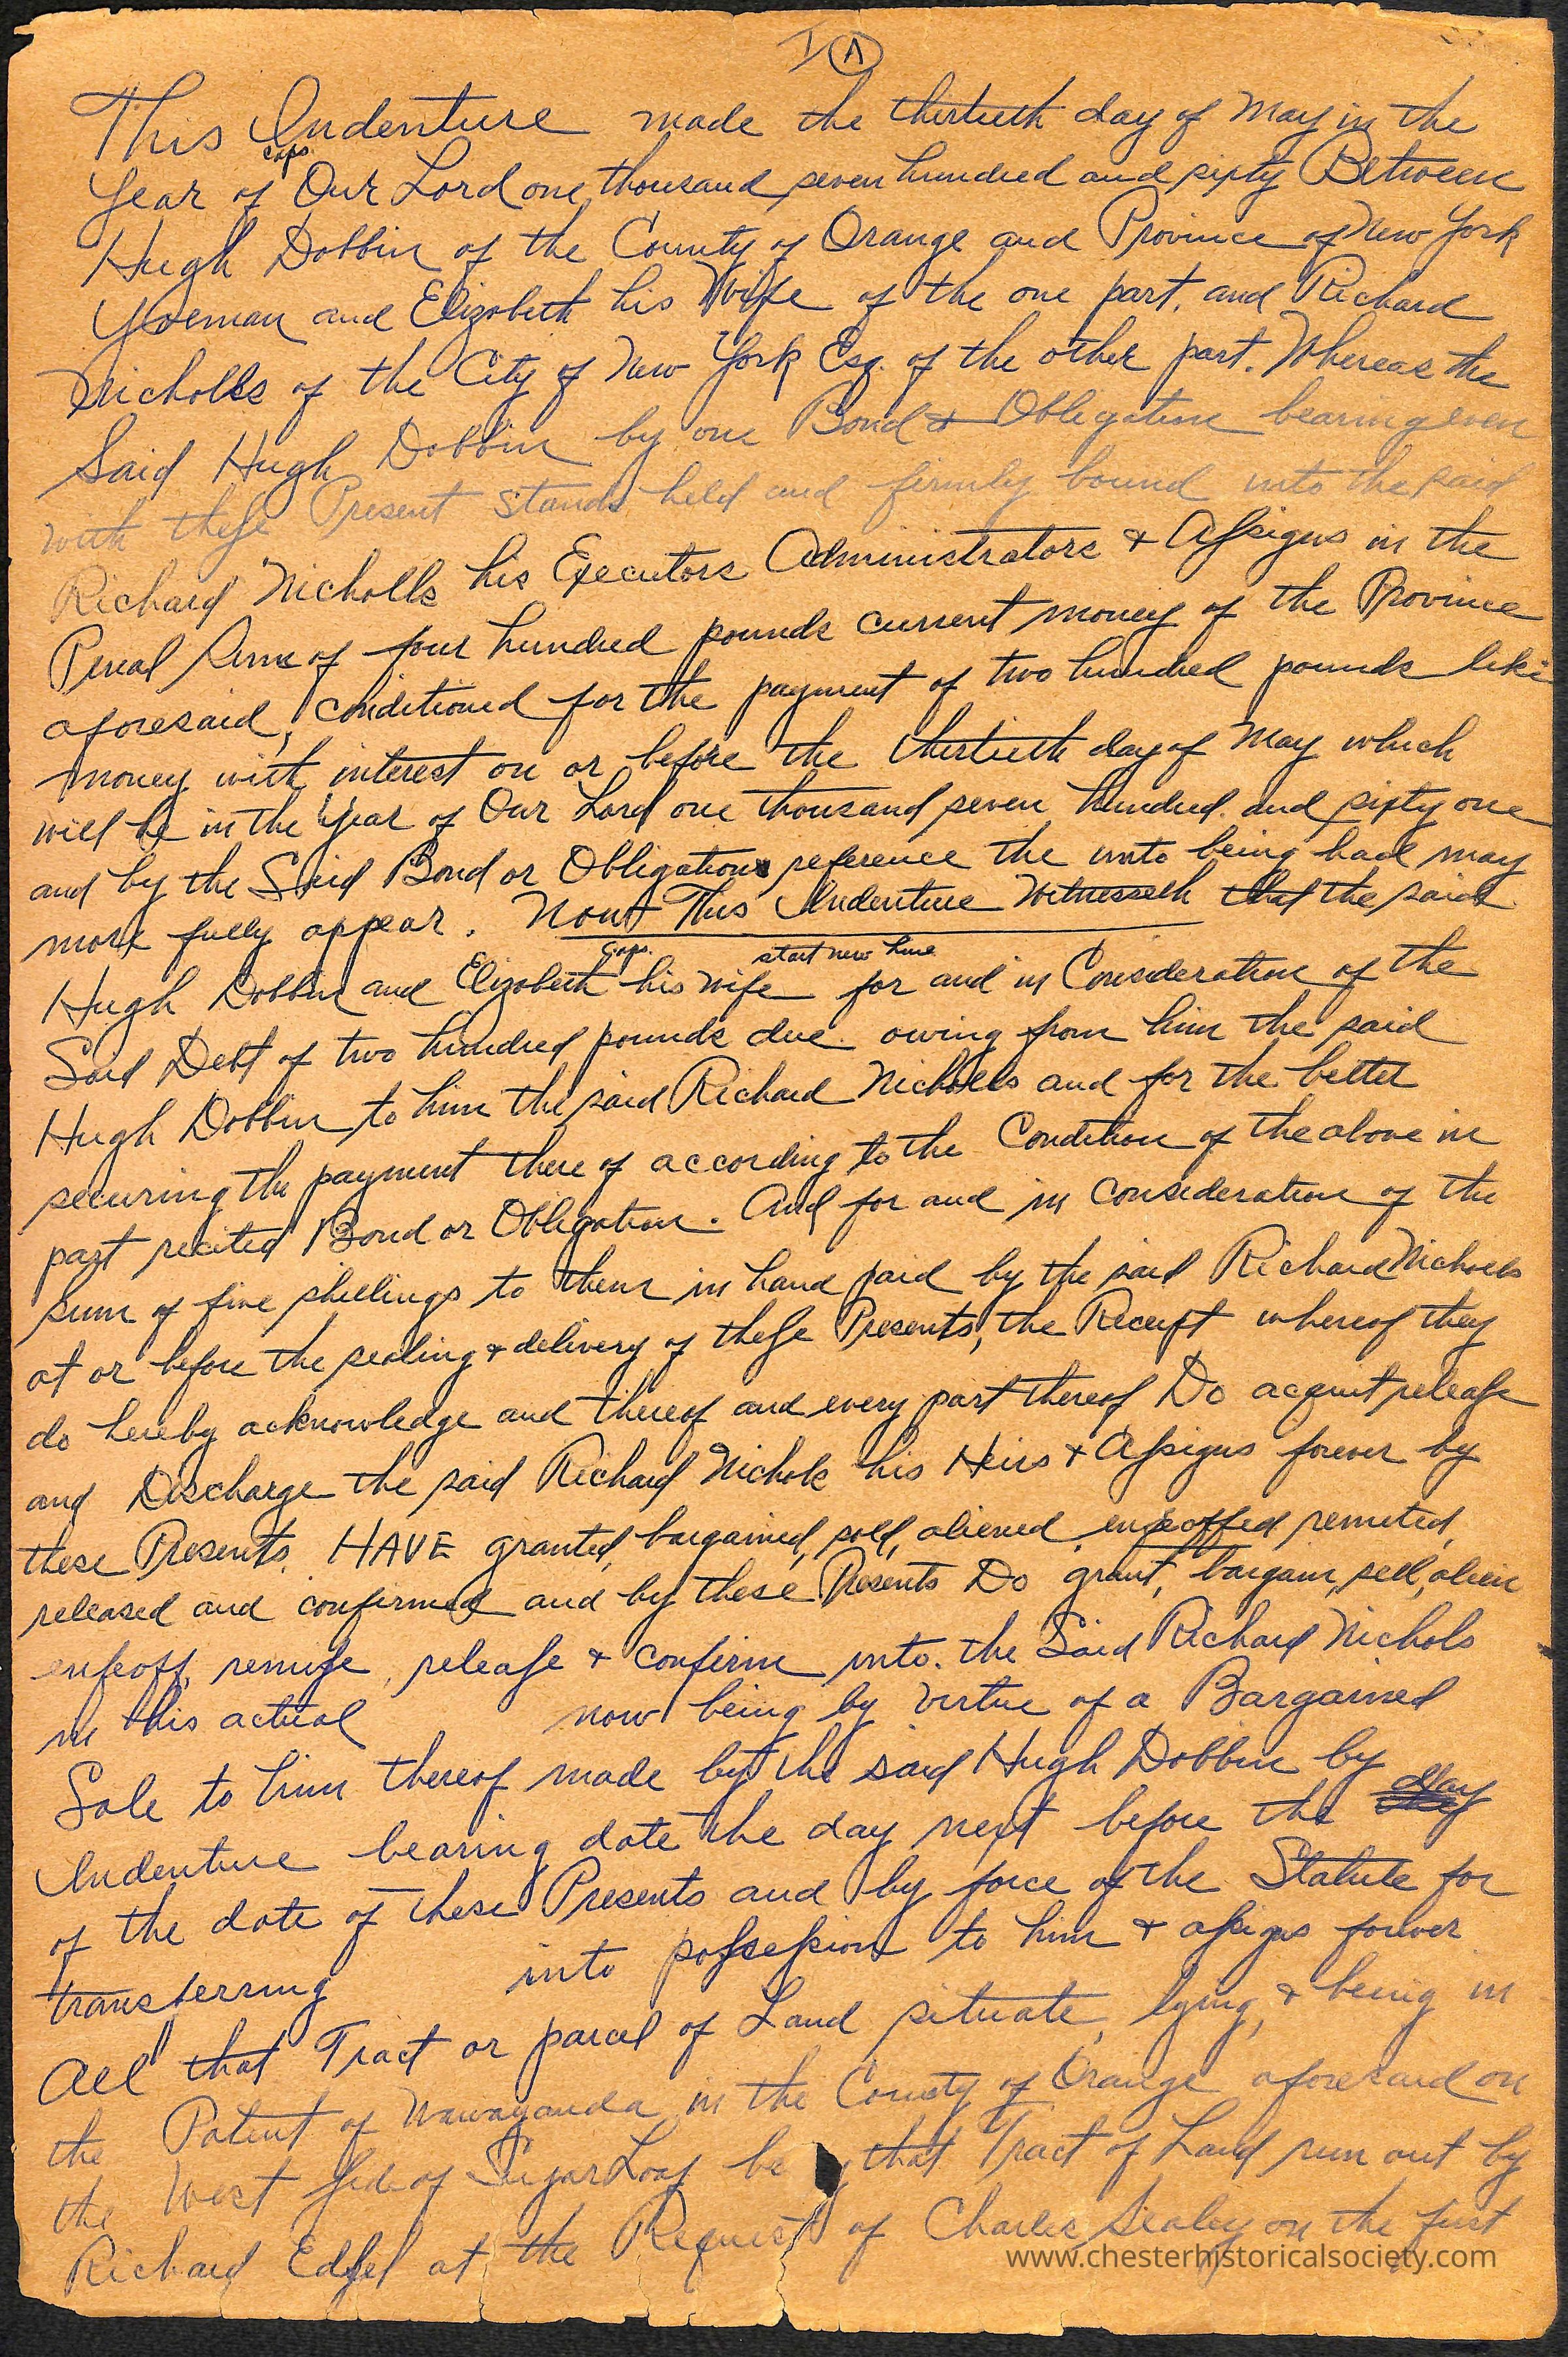 I A
This Indenture made the thirtieth day of May in the
caps.
Year of Our Lord one thousand seven hundred and sixty Between
Hugh Dobbin of the County of Orange and Province of New York
Yoeman and Elizabeth his Wife of the one part, and Richard
Nicholls of the City of New York Esq. of the other part. Whereas the
Said Hugh Dobbin by one Bond & Obligation bearing even
with thefse Present stands held and firmly bound unto the said
Richard Nicholls his Executors Administrators & Afsigns in the
Penal Sum of four hundred pounds current money of the Province
aforesaid, conditioned for the payment of two hundred pounds like
money with interest on or before the thirtieth day of May which
will be in the Year of Our Lord one thousand seven hundred and sixty one
and by the Said Bond or Obligation reference the unto being had may
more fully appear. Now This Indenture Witnesseth that the said
caps. start new line
Hugh Dobbin and Elizabeth his wife for and in Consideration of the
Said Debt of two hundred pounds due owing from him the said
Hugh Dobbin to him the said Richard Nicholls and for the better
securing the payment there of according to the Condition of the above in
part recited Bond or Obligation. And for and in consideration of the
Sum of five shillings to them in hand paid by the said Richard Nicholls
at or before the sealing & delivery of thefse Presents, the Receipt whereof they
do hereby acknowledge and thereof and every part thereof Do acquit releafse
and Discharge the said Richard Nichols his Heirs & Afsigns forever by
these Presents. HAVE granted, bargained, sold, aliened, enfeoffed remited,
released and confirmed and by these Presents Do grant, bargain, sell, alien
enfeoff, remife, releafse & confirm unto the Said Richard Nichols
in his actual now being by virtue of a Bargained
Sale to him thereof made by the said Hugh Dobbin by
Indenture bearing date the day next before the day
of the date of these Presents and by force of the Statute for
transferring into pofsefsion to him & afsigns forever
All that Tract or parcel of Land situate, lying, & being in
the Patent of Wawayanda in the County of Orange aforesaid on
the West side of Sugar Loaf be that Tract of Land run out by
Richard Edfsel at the Request of Charles Sealey on the first
www.chesterhistoricalsociety.com